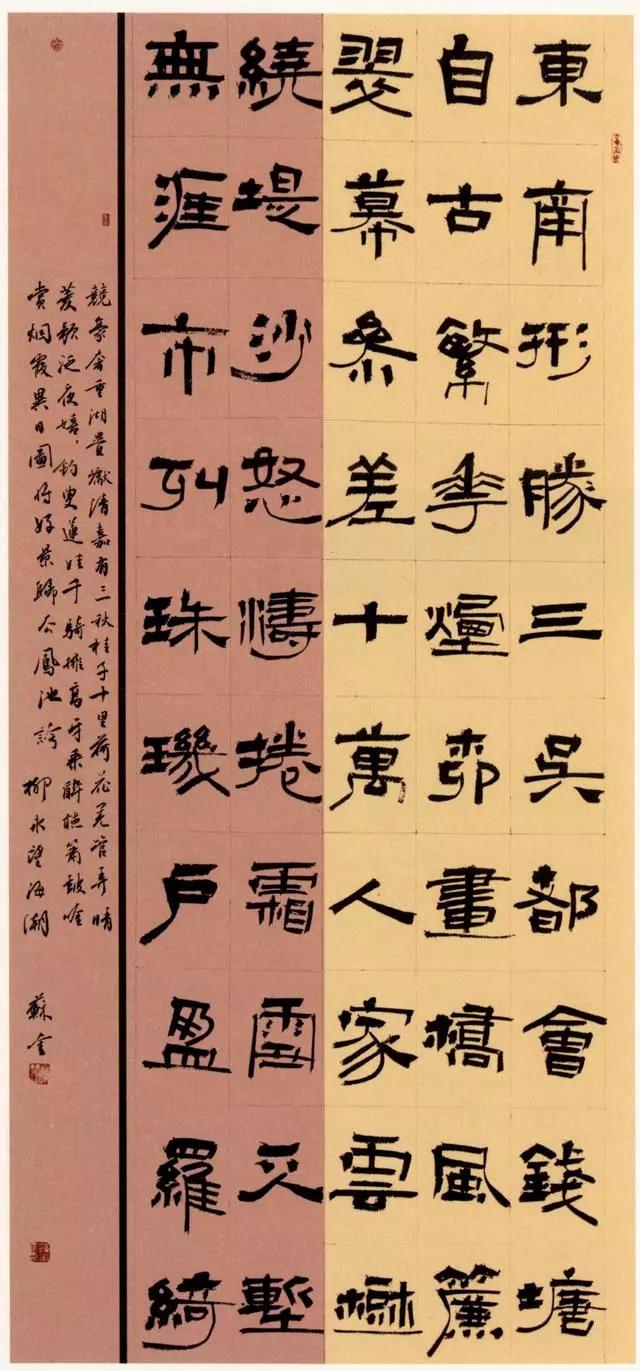 東南形勝三吳都會錢塘
自古繁華煙柳畫橋風簾
翠幕參差十萬人家雲樹
繞堤沙怒濤捲霜雪天塹
無涯市列珠璣戶盈羅綺
競豪奢重湖疊巘清嘉有三秋桂子十里荷花羌管弄晴
菱歌泛夜嬉、釣叟蓮娃千騎擁高牙乘醉聽簫鼓吟
賞烟霞異日圖將好景歸去鳳池誇 柳永望海潮 蘇